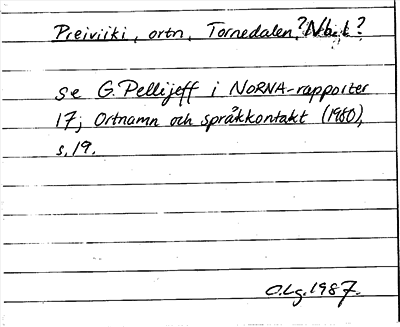 Preiviiki, ortn, Tornedalen,? Nbt?
se G. Pellijeff i NORNA-rapporter
17; Ortnamn och språkkontakt (1980),
s. 19.
O.Lg. 1987.